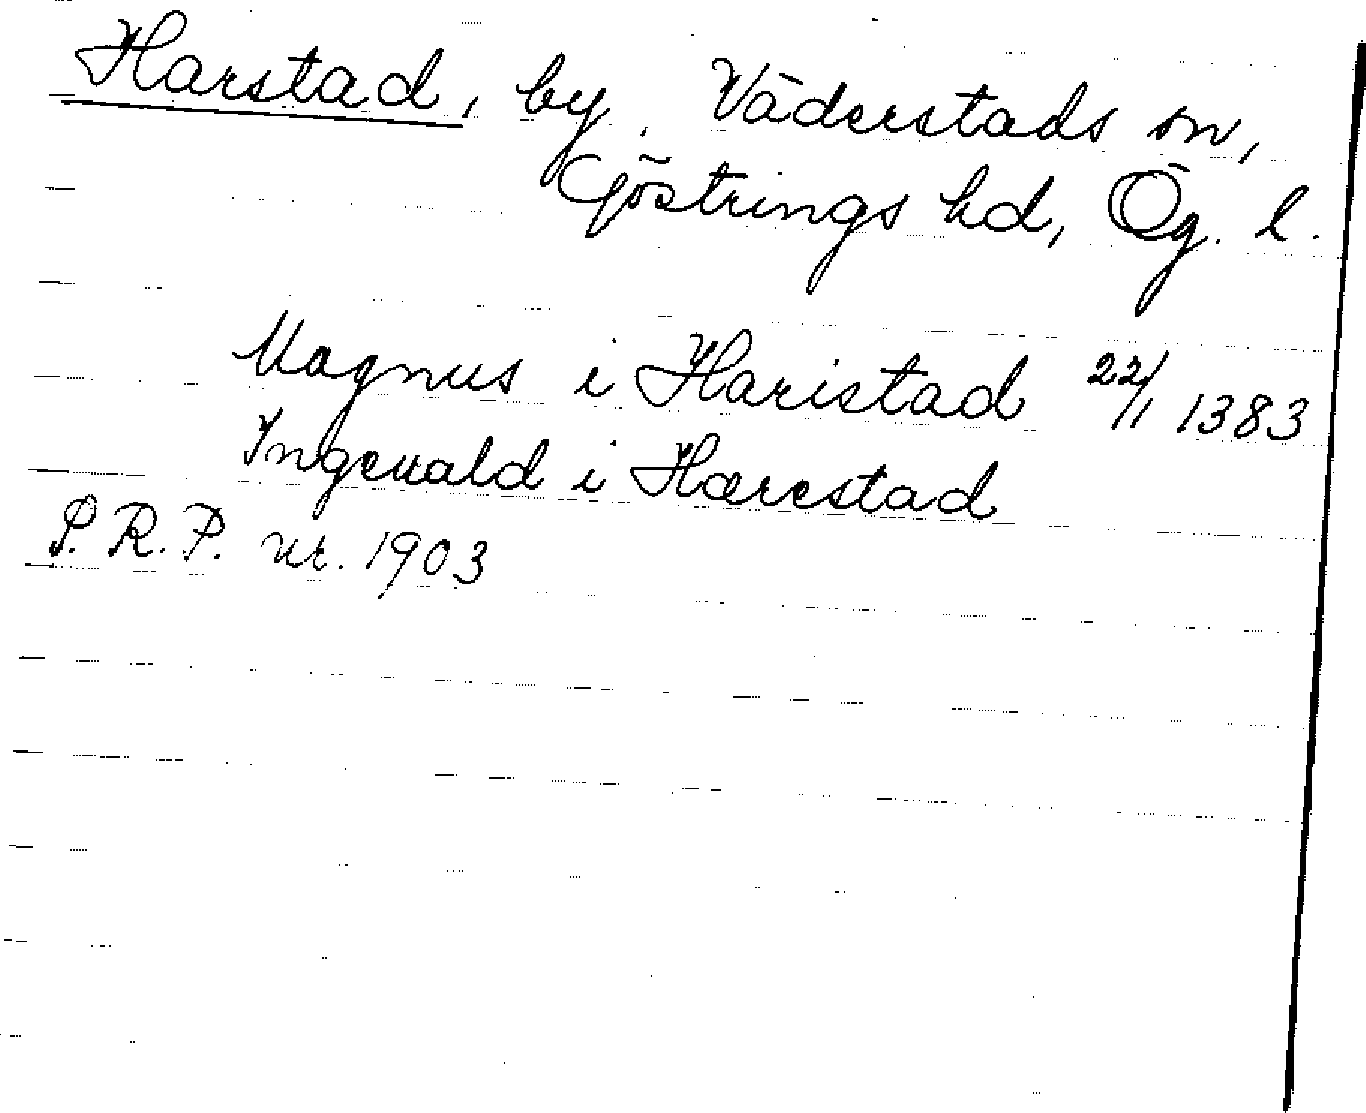 Harstad, by, Väderstads sn,
Göstrings hd, Ög. l.
Magnus i Haristad 22/1 1383
Ingeuald i Hærestad
P. R. P. nr. 1903